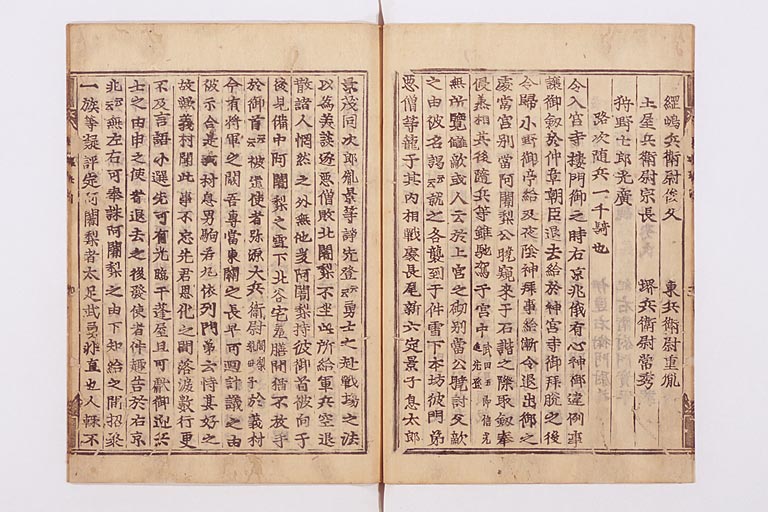 經嶋兵衛尉俊久 東兵衛尉重胤
土屋兵衛尉宗長 堺兵衛尉常秀
狩野七郎光廣
路次随兵一千騎也
令入宮寺樓門御之時右京兆俄有心神御違例事
讓御劔於仲章朝臣退去給於神宮寺御拜脱之後
令歸小野御亭給及夜陰神拜事終漸令退出御之
處當宮別當阿闍梨公曉窺來于石階之際取劔奉
侵 其後隨兵等雖馳駕于宮中 武田五郎信光進先登
無所覓讎敵或人云於上宮之砌別當公曉討父敵
之由被名謁云云就之各襲到于件雪下本坊彼門弟
悪僧等籠于其内相戰處長尾新六定景子息太郎
景茂同次郎胤景等諍先登云云勇士之赴戰場之法
以為美談遂悪僧敗北闍梨不坐此所給軍兵空退
散諸人惘然之外無他爰阿闍梨持彼御首被向于
後見備中阿闍梨之雪下北谷宅羞膳間猶不放手
於御首云云被遣使者弥源太兵衛尉闍梨乳母子於義村
今有將軍之闕吾專當東關之長早可廻計議之由
被示合是義村息男駒若丸依列門弟云恃其好之
故歟義村聞此事不忘先君恩化之間落淚數行更
不及言語小選先可有光臨于蓬屋且可獻御迎
士之由申之使者退去之後發使者件趣告於右京
兆云云無左右可奉誅阿闍梨之由下知給之間招聚
一族等凝評定阿闍梨者太足武勇非直也人輙不